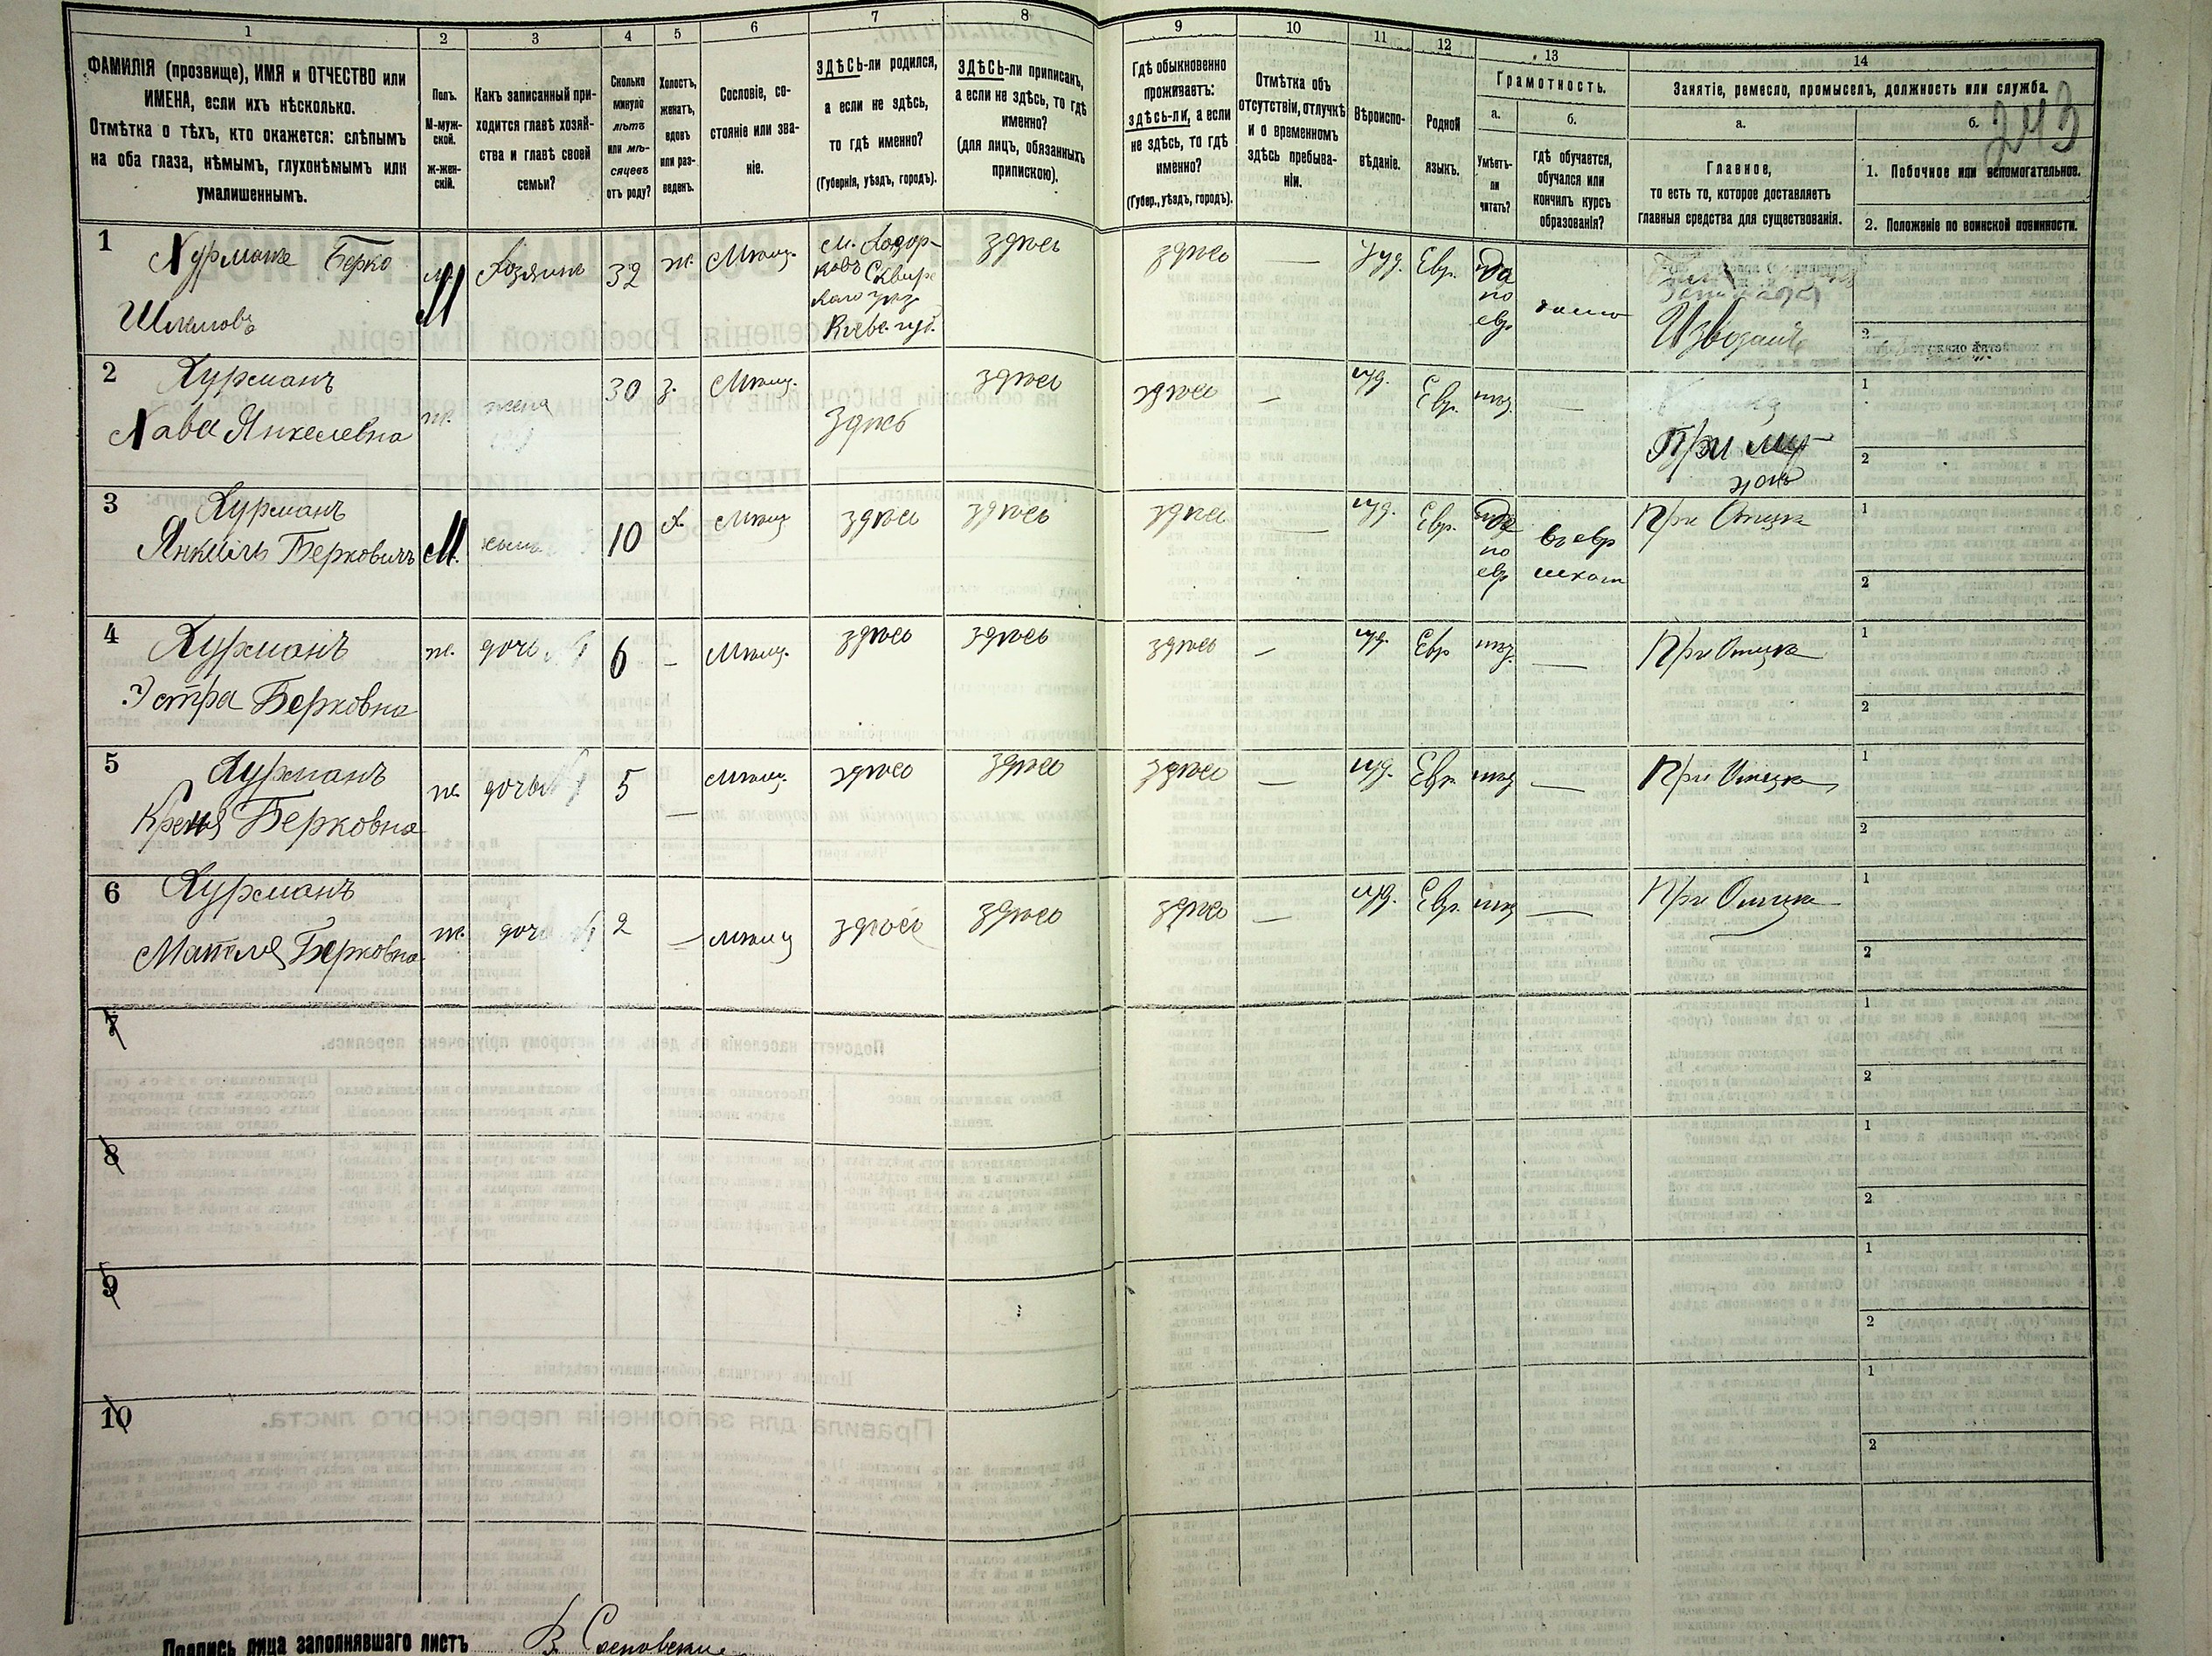 1 2 3 4 5 6 7 8 9 10 11 12 13 14
ФАМИЛІЯ (прозвище), ИМЯ и ОТЧЕСТВО или
ИМЕНА, если ихъ нѣсколько.
Отмѣтка о тѣхъ, кто окажется: слѣпымъ
на оба глаза, нѣмымъ, глухонѣмымъ или
умалишеннымъ.
Полъ.
М-муж-
ской.
ж-жен-
скій.
Какъ записанный при-
ходится главѣ хозяй-
ства и главѣ своей
семьи?
Сколько
минуло
лѣтъ
или мѣ-
сяцевъ
отъ роду?
Холостъ,
женатъ,
вдовъ
или раз-
веденъ.
Сословіе, со-
стояніе или зва-
ніе.
ЗДѢСЬ-ли родился,
а если не здѣсь,
то гдѣ именно?
(Губернія, уѣздъ, городъ).
ЗДѢСЬ-ли приписанъ,
а если не здѣсь, то гдѣ
именно?
(для лицъ, обязанныхъ
припискою).
Гдѣ обыкновенно
проживаетъ:
здѣсь-ли, а если
не здѣсь, то гдѣ
именно?
(Губер., уѣздъ, городъ).
Отмѣтка объ
отсутствіи, отлучкѣ
и о временномъ
здѣсь пребыва-
ніи.
Вѣроиспо-
вѣданіе.
Родной
языкъ.
Грамотность.
а.
Умѣетъ-
ли
читать?
б.
гдѣ обучается,
обучался или
кончилъ курсъ
образованія?
Занятіе, ремесло, промыселъ, должность или служба.
а.
Главное,
то есть то, которое доставляетъ
главныя средства для существованія.
б.
243
1. Побочное или вспомогательное.
2. Положеніе по воинской повинности.
1 Хурманъ Берко
Шлиомовъ
м. М Хозяинъ 32 ж. Мѣщ.
м. Ходор-
ковъ Сквир
скаго уѣз
Кіевс. губ.
здѣсь здѣсь — Іуд. Евр.
да
по
евр
дома
Извозчикъ
2
2 Хурманъ
Хава Янкелевна
ж. жена 30 з. Мѣщ. здѣсь здѣсь здѣсь — іуд. Евр. нѣт —
При му-
жѣ
1
2
3 Хурманъ
Янкель Берковичъ
М. сынъ 10 х. Мѣщ здѣсь здѣсь здѣсь — іуд. Евр.
да
по
евр
въ евр
школѣ
При Отцѣ
1
2
4 Хурманъ
Эстра Берковна
ж. дочь 6 — Мѣщ. здѣсь здѣсь здѣсь — іуд. Евр нѣт. — При Отцѣ
1
2
5 Хурманъ
Креня Берковна
ж. дочь 5 — Мѣщ. здѣсь здѣсь здѣсь — іуд. Евр. нѣт — При Отцѣ
1
2
6 Хурманъ
Матля Берковна
ж. дочь 2 — Мѣщ здѣсь здѣсь здѣсь — іуд. Евр. нѣт — При Отцѣ
1
2
7
1
2
8
1
2
9
1
2
10
1
2
Подпись лица заполнявшаго листъ